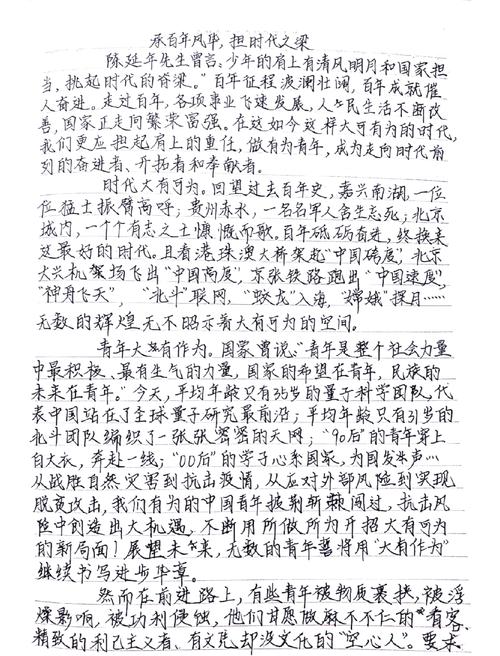 承百年风华,担时代之梁
陈延年先生曾言:"少年的肩上有清风明月和国家担
当,挑起时代的脊梁。"百年征程波澜壮阔,百年成就催
人奋进。走过百年,各项事业飞速发展,人人民生活不断改
善,国家正走向繁荣富强。在这如今这样大可有为的时代,
我们更应担起肩上的重任,做有为青年,成为走向时代前
列的奋进者、开拓者和奉献者。
时代大有可为。回望过去百年史,嘉兴南湖,一位
位猛士振臂高呼;贵州赤水,一名名军人舍生忘死;北京
城内,一个个有志之士慷慨而歌。百年砥砺奋进,终换来
这最好的时代。且看港珠澳大桥架起"中国砖度",北京
大兴机场飞出"中国高度",京张铁路跑出"中国速度",
"神舟飞天","北斗"联网,"蛟龙"入海,"嫦娥"探月……
无数的辉煌无不昭示着大有可为的空间。
青年大有作为。国家曾说:"青年是整个社会力量
中最积极、最有生气的力量,国家的希望在青年,民族的
未来在青年。"今天,平均年龄只有35岁的量子科学团队,代
表中国站在了全球量子研究最前沿;平均年龄只有31岁的
北斗团队编织了一张张密密的天网;"90后"的青年穿上
白大衣,奔赴一线;"00后"的学子心系国家,为国发声…
从战胜自然灾害到抗击疫情,从应对外部风险到实现
脱贫攻坚,我们有为的中国青年披荆斩棘闯过,抗击风
险中创造出大机遇,不断用所做所为开招大有可为
的新局面!展望未来,无数的青年誓将用"大有作为"
继续书写进步华章。
然而在前进路上,有些青年被物质裹挟,被浮
燥影响,被功利侵蚀,他们甘愿做麻不不仁的"看客、
精致的利己主义者、有文凭却没文化的"空心人"。要求